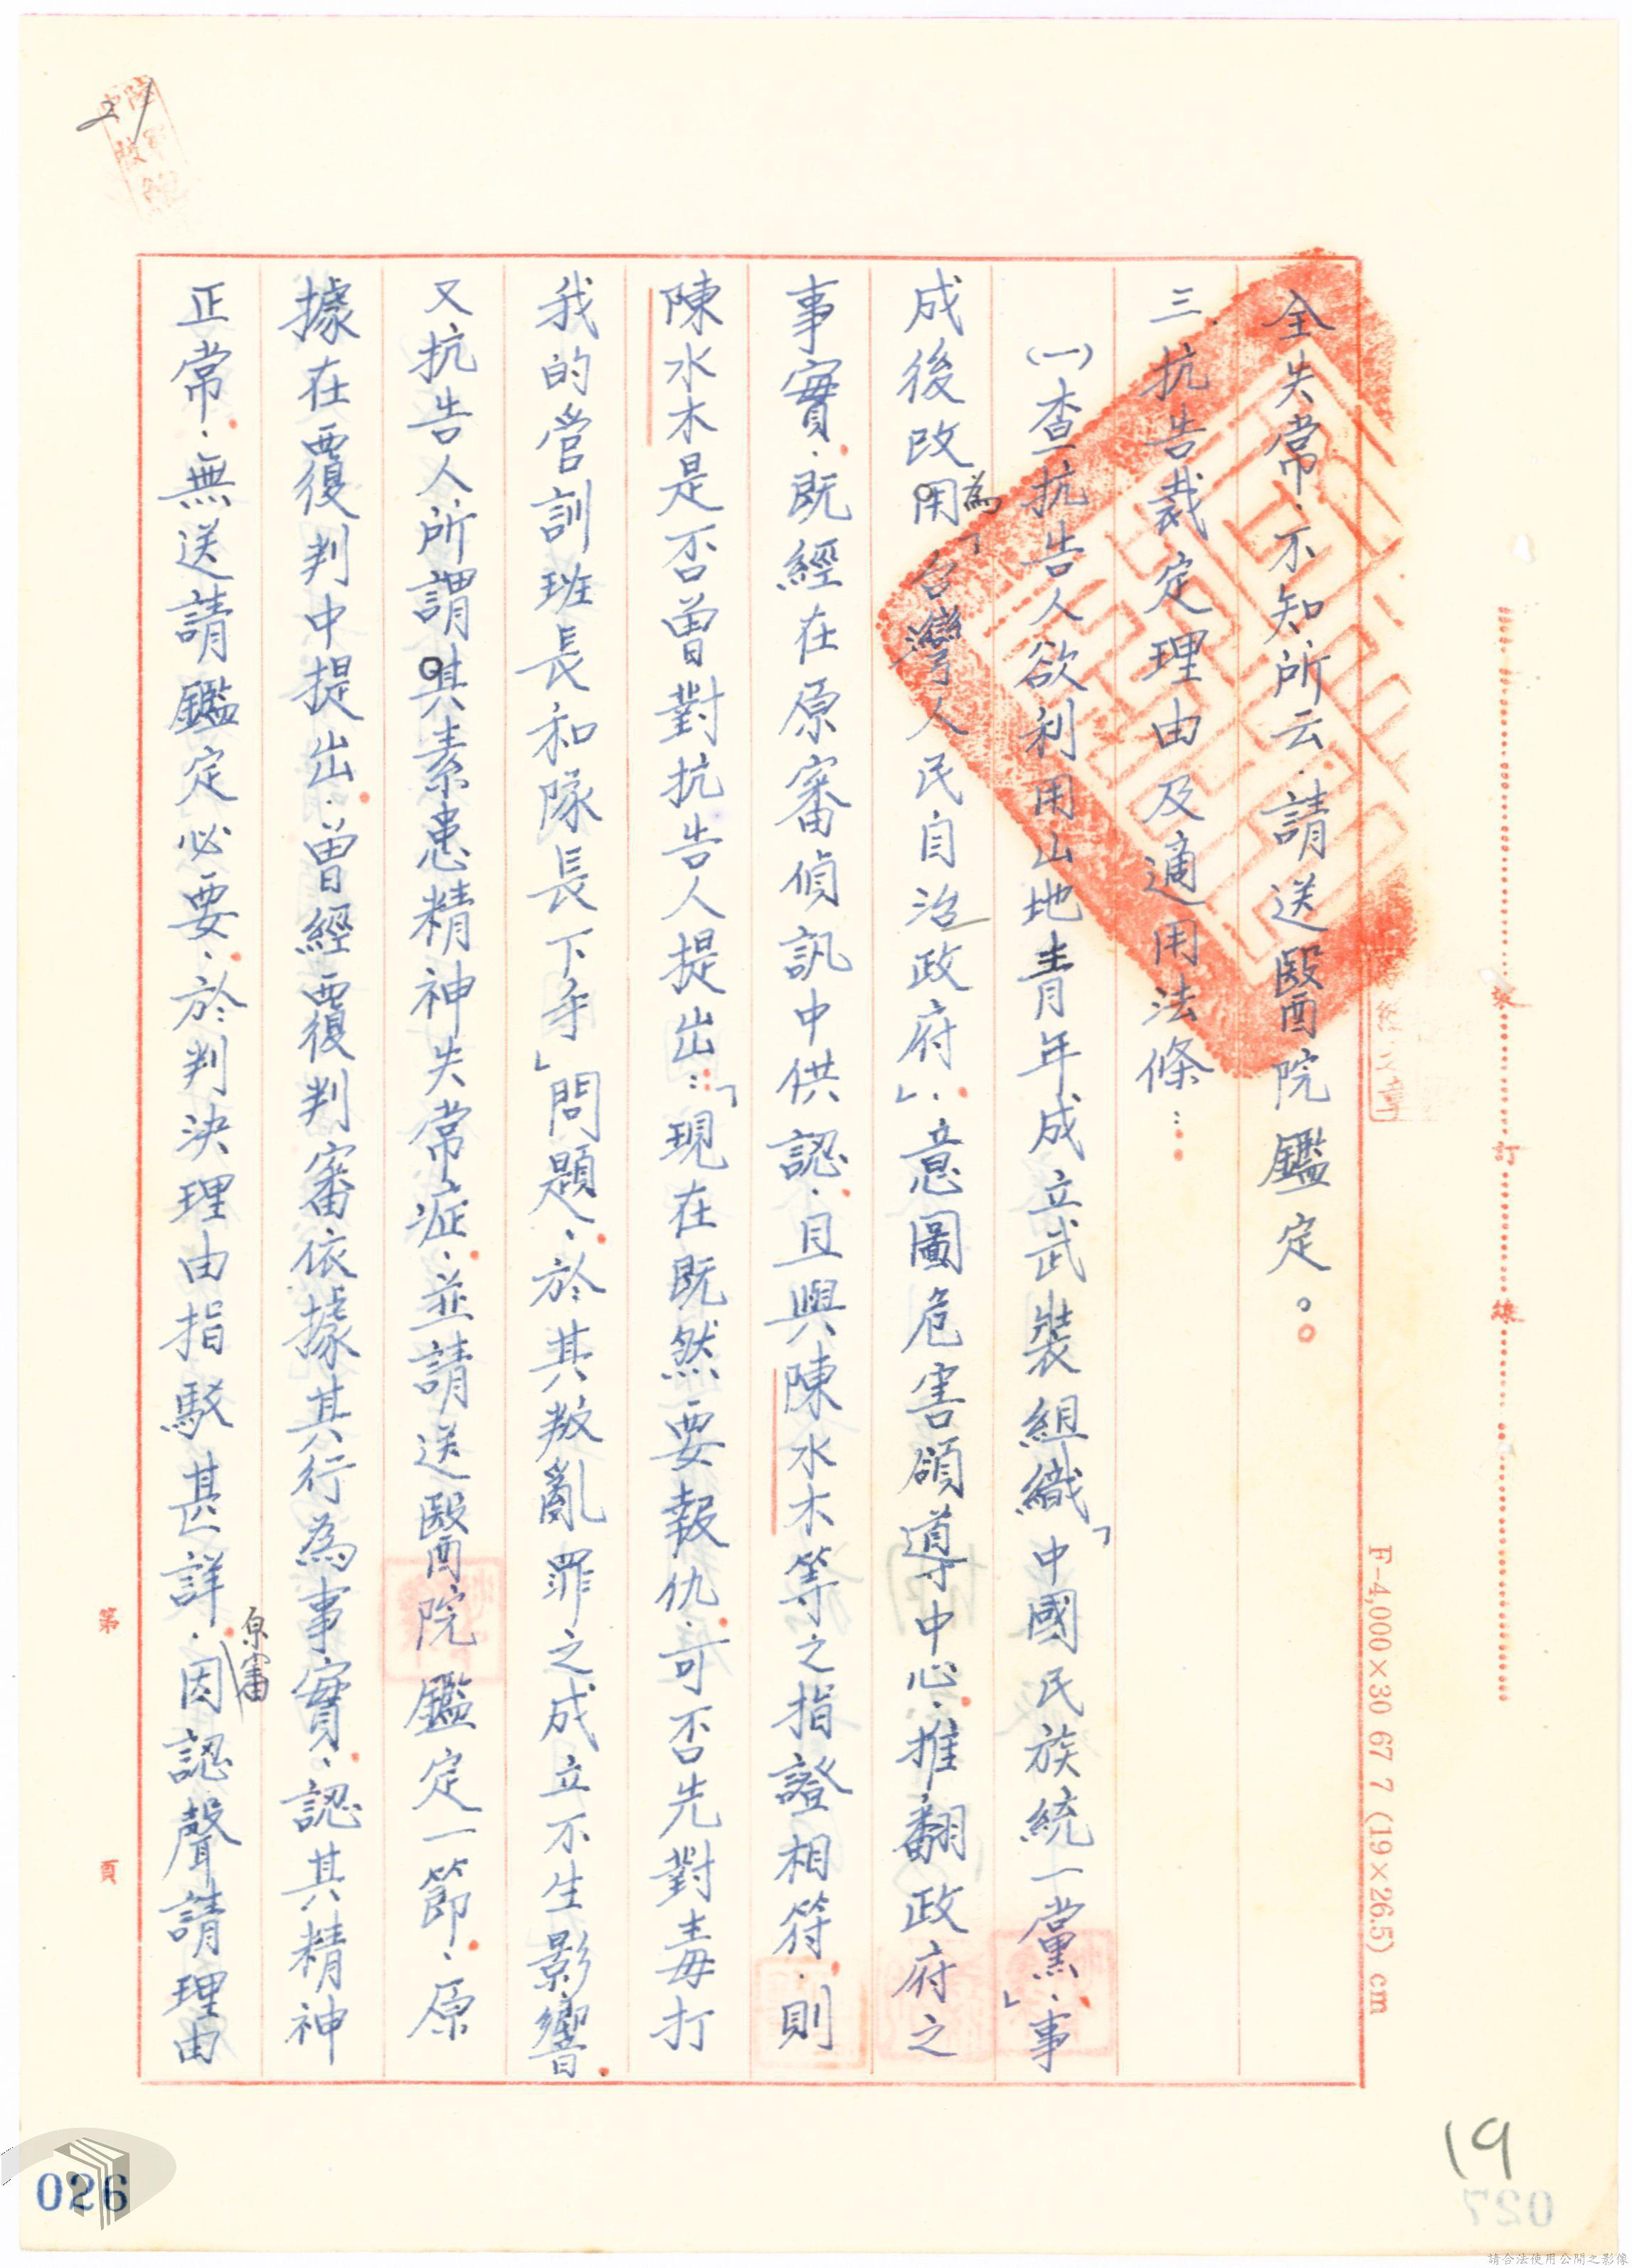 全失常、不知所云、請送醫院鑑定。
三、抗告裁定理由及適用法條：
(一)查抗告人欲利用山地青年成立武裝組織「中國民族統一黨」、事
成後改用為「台灣人民自治政府」、意圖危害領導中心、推翻政府之
事實、既經在原審偵訊中供認、且與陳水木等之指證相符、則
陳水木是否曾對抗告人提出：「現在既然要報仇、可否先對毒打
我的管訓班長和隊長下手」問題、於其叛亂罪之成立不生影響、
又抗告人所謂其素患精神失常症、並請送醫院鑑定一節、原
據在覆判中提出、曾經覆判審依據其行為事實、認其精神
正常、無送請鑑定必要、於判決理由指駁甚詳、原審因認聲請理由
第 頁
裝 訂 線
F-4,000×30 67 7 (19×26.5) cm
21
19
026
027
請合法使用公開之影像